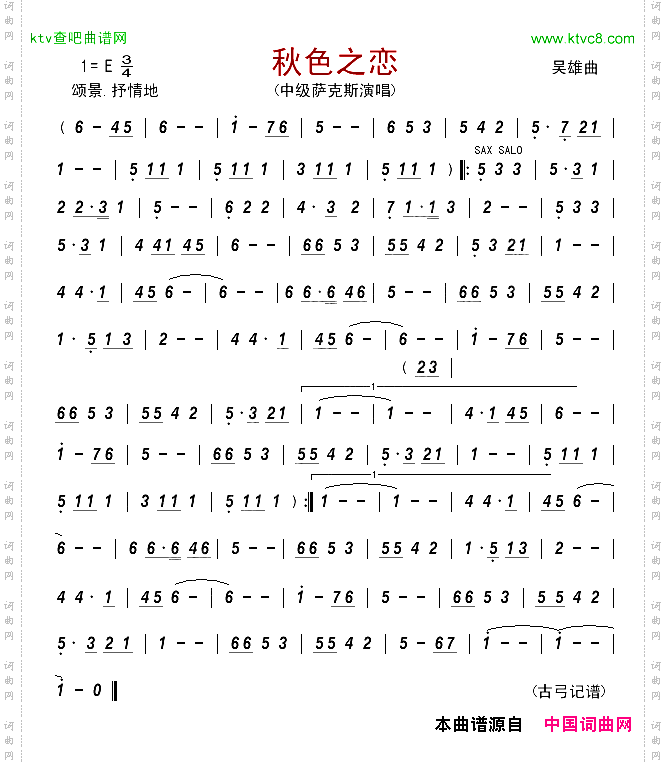 ktv查吧曲谱网 www.ktvc8.com
秋色之恋
1= E 3/4 吴雄曲
颂景.抒情地 (中级萨克斯演唱)
( 6 - 45 | 6 - - | 1 - 76 | 5 - - | 6 5 3 | 5 4 2 | 5 · 7 21 |
SAX SALO
1 - - | 5 11 1 | 5 11 1 | 3 11 1 | 5 11 1 ) ‖: 5 3 3 | 5 · 3 1 |
2 2 · 3 1 | 5 - - | 6 2 2 | 4 · 3 2 | 7 1 · 1 3 | 2 - - | 5 3 3 |
5 · 3 1 | 4 41 45 | 6 - - | 66 5 3 | 55 4 2 | 5 3 21 | 1 - - |
4 4 · 1 | 45 6 - | 6 - - | 6 66 · 6 46 | 5 - - | 66 5 3 | 55 4 2 |
1 · 5 1 3 | 2 - - | 4 4 · 1 | 45 6 - | 6 - - | 1 - 76 | 5 - - |
( 23 |
1
66 5 3 | 55 4 2 | 5 · 3 21 | 1 - - | 1 - - | 4 · 1 45 | 6 - - |
1 - 76 | 5 - - | 66 5 3 | 55 4 2 | 5 · 3 21 | 1 - - | 5 11 1 |
1
5 11 1 | 3 11 1 | 5 11 1 ) :‖ 1 - - | 1 - - | 4 4 · 1 | 45 6 - |
6 - - | 6 6 · 6 46 | 5 - - | 66 5 3 | 55 4 2 | 1 · 5 13 | 2 - - |
4 4 · 1 | 45 6 - | 6 - - | 1 - 76 | 5 - - | 66 5 3 | 55 4 2 |
5 · 3 2 1 | 1 - - | 66 5 3 | 55 4 2 | 5 - 67 | 1 - - | 1 - - |
1 - 0 ‖ (古弓记谱)
本曲谱源自 中国词曲网